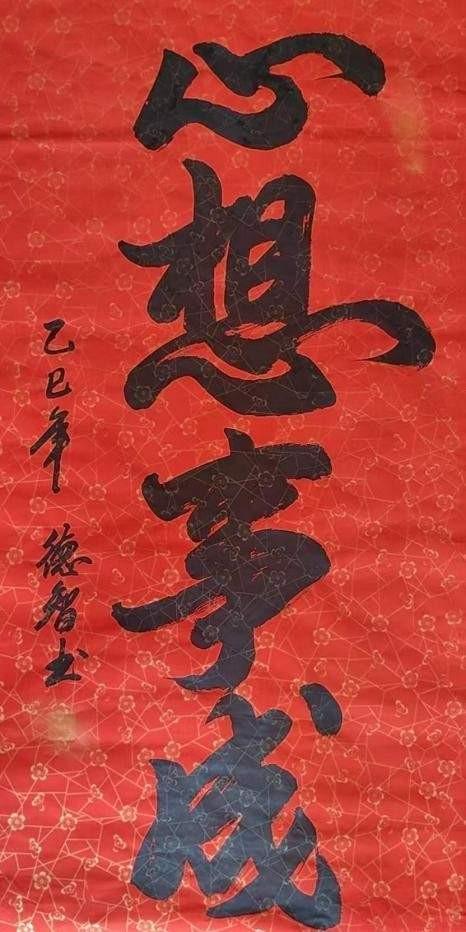 心想事成
乙巳年 德智书